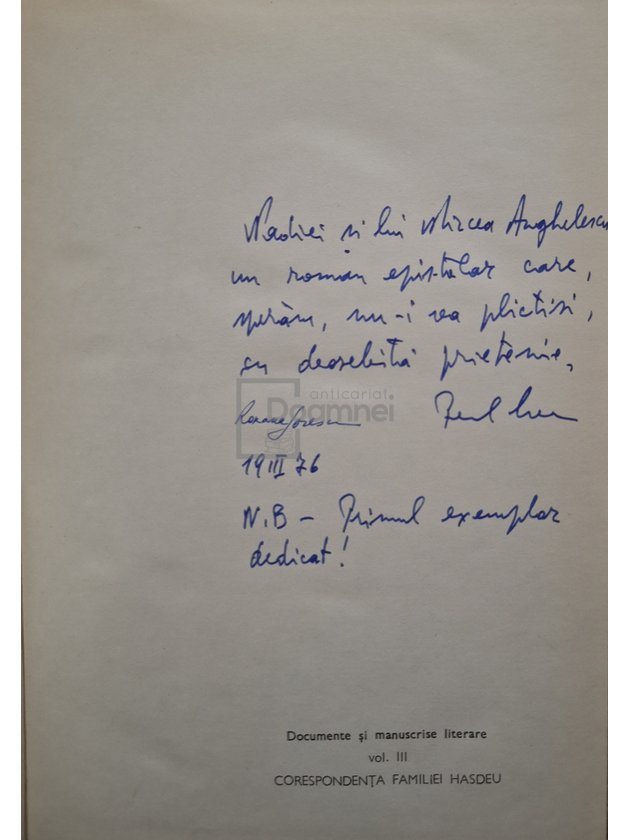 Nadiei și lui Mircea Anghelescu
un roman epistolar care,
sperăm, nu-i va plictisi,
cu deosebită prietenie,
anticariat
Doamnei
Roxana Sorescu
19 III 76
N.B - Primul exemplar
dedicat!
Documente și manuscrise literare
vol. III
CORESPONDENȚA FAMILIEI HASDEU